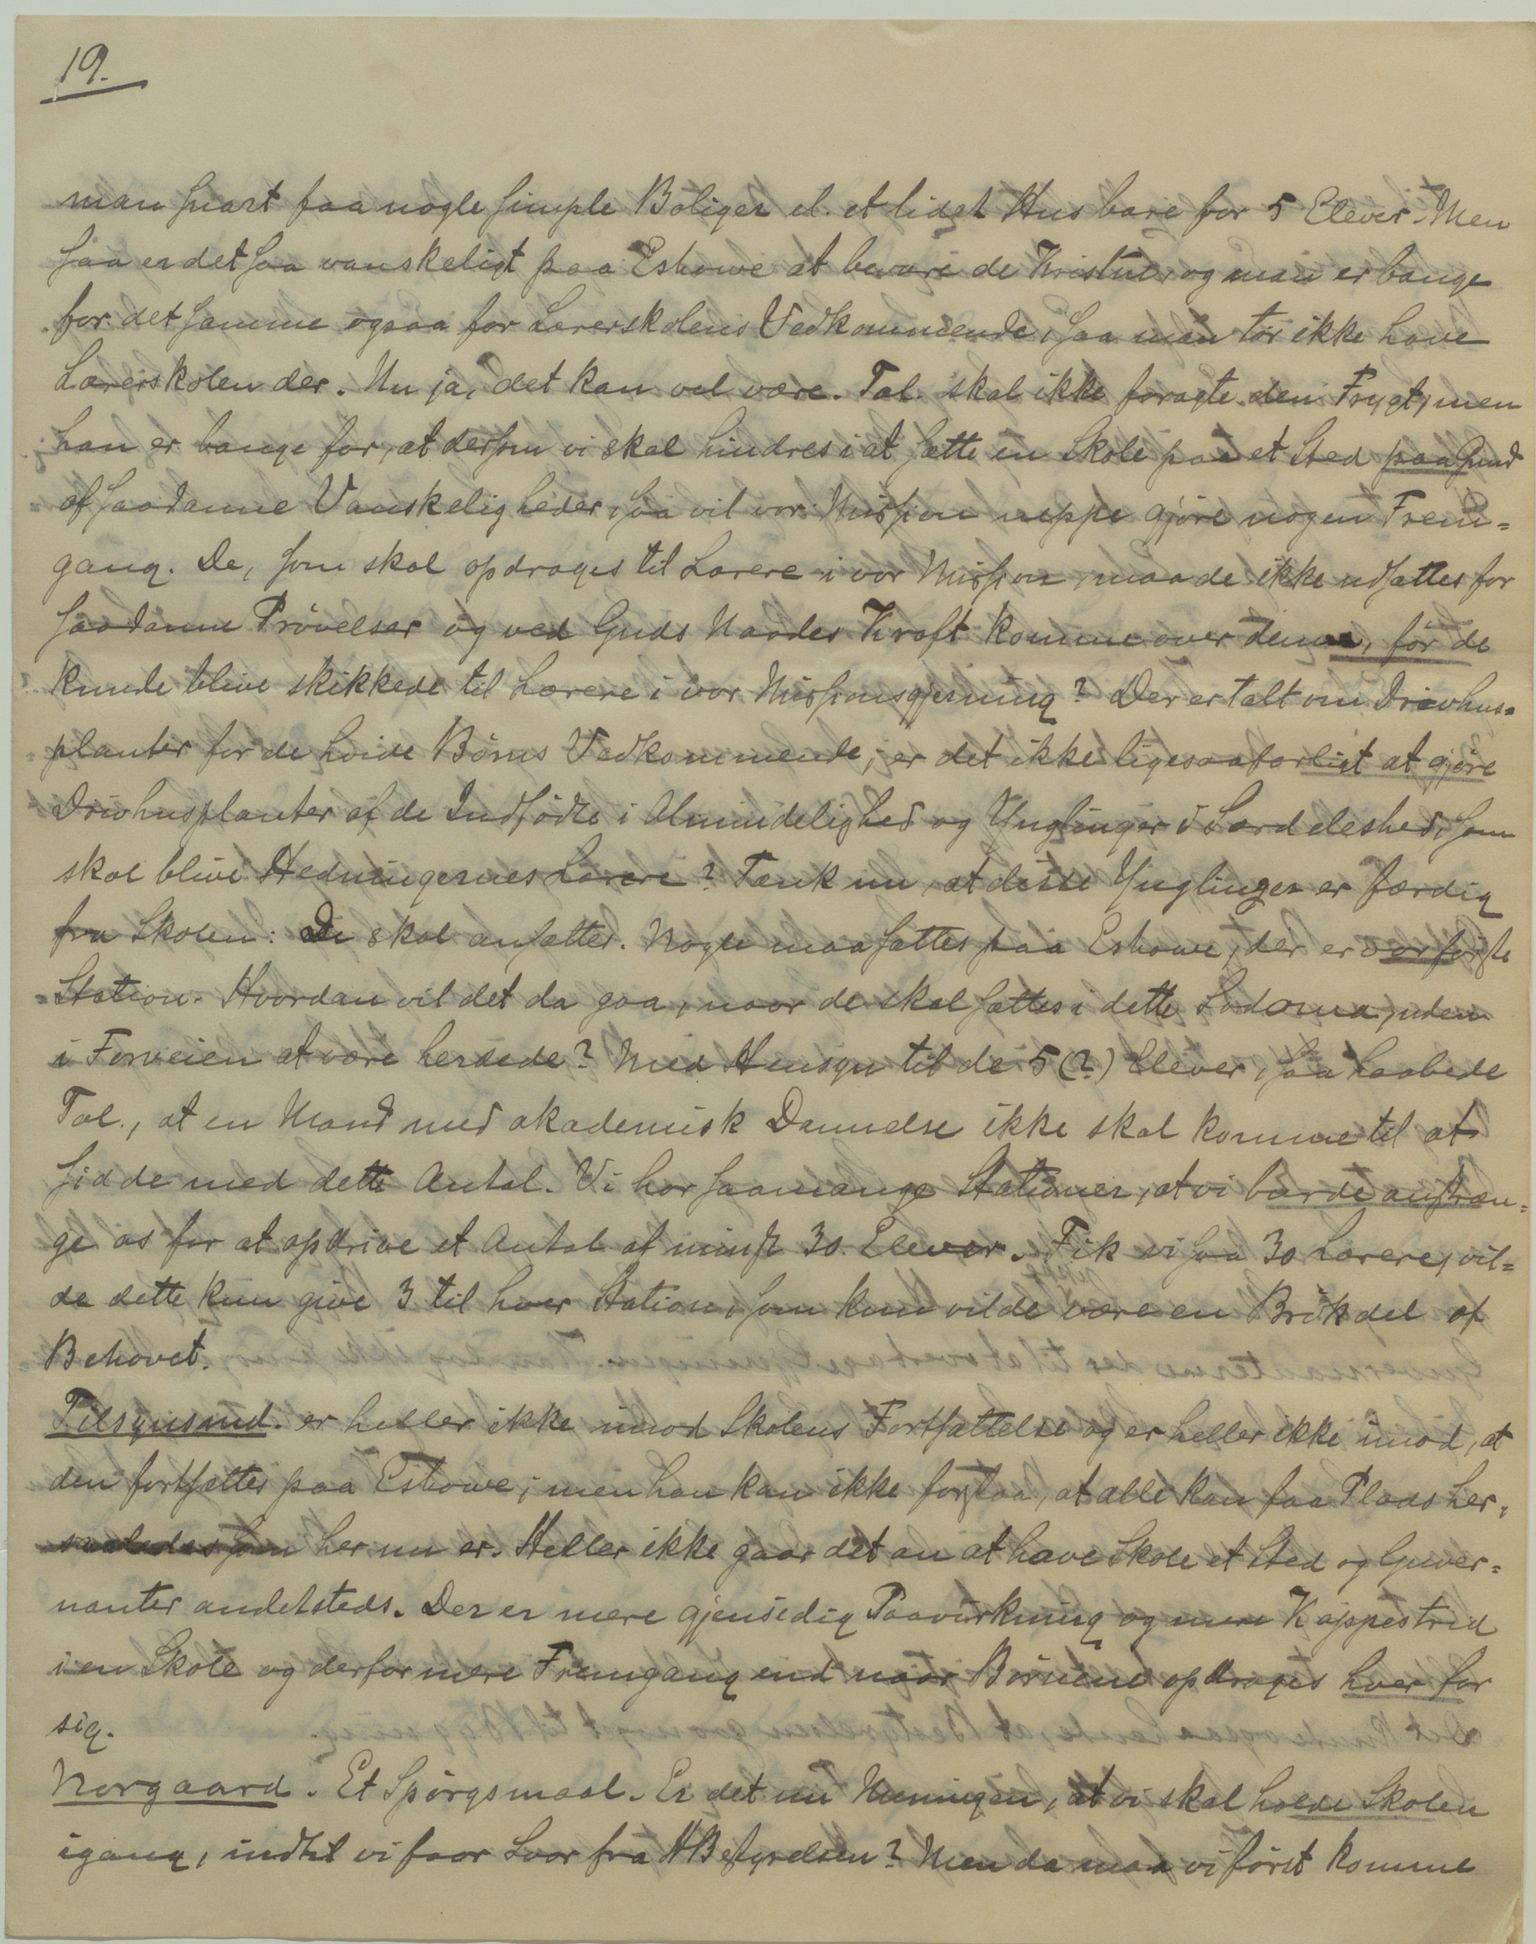 19.
man snart faa nogle simple Boliger el. et lidet Hus bare for 5 Elever. Men
saa er det saa vanskeligt paa Eshowe at bevare de Kristne, og man er bange
for det samme ogsaa for Lærerskolens Vedkommende, saa man tør ikke have
Lærerskolen der. Nu ja, det kan vel være. Tal. skal ikke foragte den Frygt, men
han er bange for, at dersom vi skal hindres i at sætte en Skole paa et Sted paa Grund
af saadanne Vanskeligheder, saa vil vor Mission neppe gjøre nogen Frem=
gang. De, som skal opdrages til Lærere i vor Mission, maa de ikke udsættes for
saadanne Prøvelser og ved Guds Naades Kraft komme over denne, før de
kunde blive skikkede til Lærere i vor Missionsgjerning? Der er talt om Drivhus=
planter for de hvide Børns Vedkommende; er det ikke ligesaa farligt at gjøre
Drivhusplanter af de Indfødte i Almindelighed og Ynglinger i Særdeleshed, som
skal blive Hedningernes Lærere? Tænk nu, at disse Ynglinger er færdig
fra Skolen: De skal ansættes. Nogle maa sættes paa Eshowe, der er vor første
Station. Hvordan vil det da gaa, naar de skal sættes i dette Sodoma, uden
i Forveien at være herdede? Med Hensyn til de 5 (?) Elever, saa haabede
Tal., at en Mand med akademisk Dannelse ikke skal komme til at
sidde med dette Antal. Vi har saamange Stationer, at vi burde anstren=
ge os for at opdrive et Antal af minst 30 Elever. Fik vi saa 30 Lærere, vil=
de dette kun give 3 til hver Station, som kun vilde være en Brøkdel af
Behovet.
Tilsynsmd. er heller ikke imod Skolens Fortsættelse og er heller ikke imod, at
den fortsættes paa Eshowe; men han kan ikke forstaa, at alle kan faa Plads her,
saaledes som her nu er. Heller ikke gaar det an at have Skole et Sted og Guver=
nanter andetsteds. Der er mere gjensidig Paavirkning og mere Kappestrid
i en Skole og derfor mere Fremgang end naar Børnene opdrages hver for
sig.
Norgaard. Et Spørgsmaal. Er det nu Meningen, at vi skal holde Skolen
igang, indtil vi faar Svar fra HBestyrelsen? Men da maa vi først komme